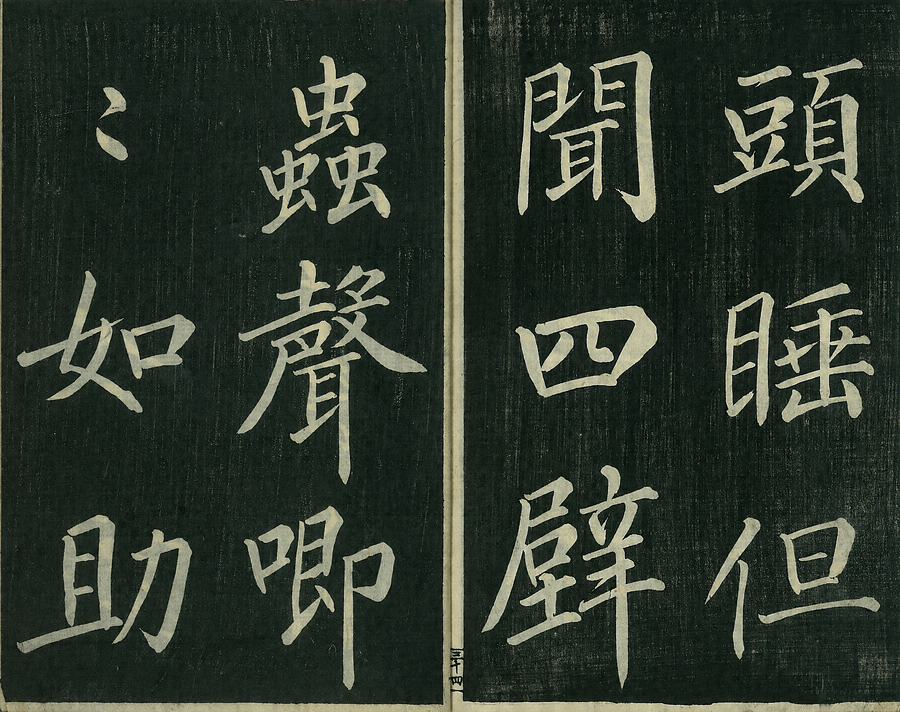 頭睡但
聞四壁
蟲聲唧
〻如助
三十四